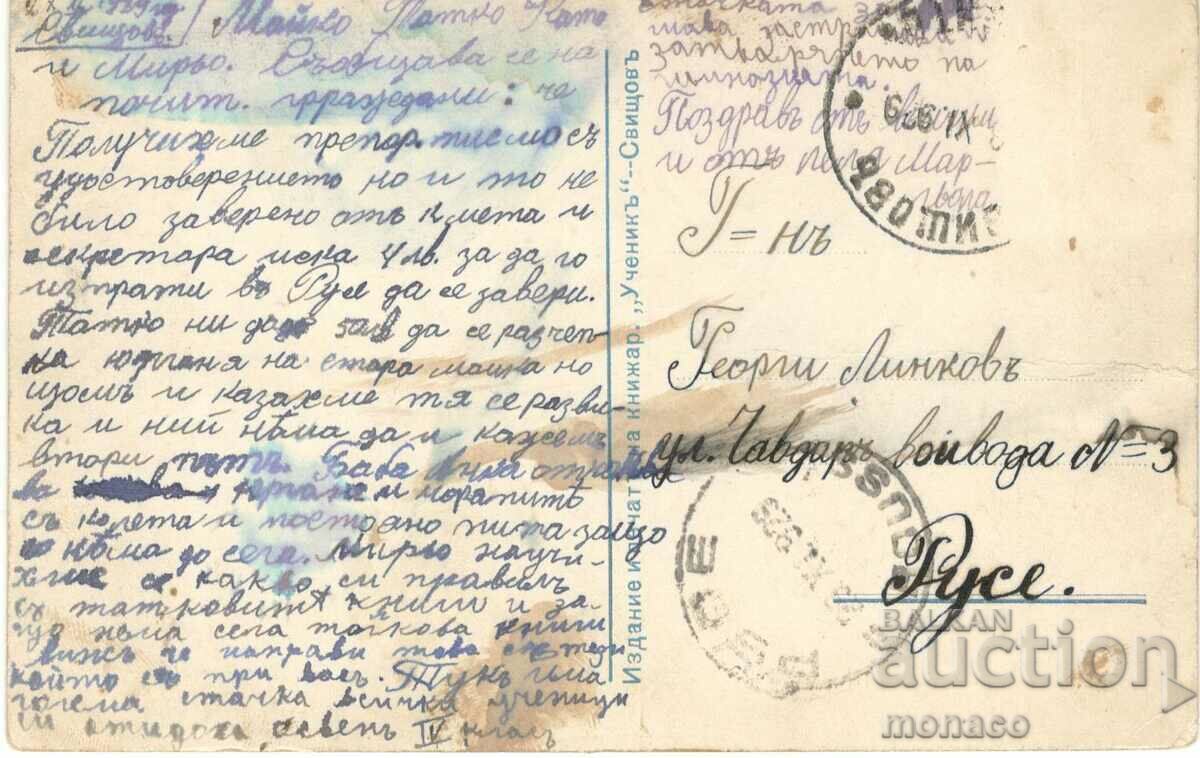 Свищовъ. Майко Татко Като
и Мирьо. Съобщава се на
почит. граждани: че
Получихме препор. писмо съ
удостоверението но и то не
било заверено отъ кмета и
секретара иска 4 лв. за да го
изпрати въ Русе да се завери.
Татко ни даде 50 лв да се разчеп-
ка юргана на стара майка но
щомъ и казахме тя се разви-
ка и ний нѣма да и кажемъ
втори пътъ. Баба
ва юргана и
съ колета и постояно пита защо
нѣма до сега. Мирьо научи-
хме се какво си правилъ
съ татковитѣ книги и за-
що нема сега толкова книги
вижъ че направи това съ тези
който съ при васъ. Тукъ има
голема стачка всички ученици
си отидоха освенъ IV класъ
стачката
затварянето на
гимназията.
Поздравъ отъ
и отъ леля Мар-
СВИЩОВЪ
XI 929
Г=нъ
Георги Линковъ
ул. Чавдаръ войвода №=3
Русе.
РУСЕ
ROUSSE
XI 929
Издание и печат на книжар. „Ученикъ“—Свищовъ
BALKAN
auction
monaco